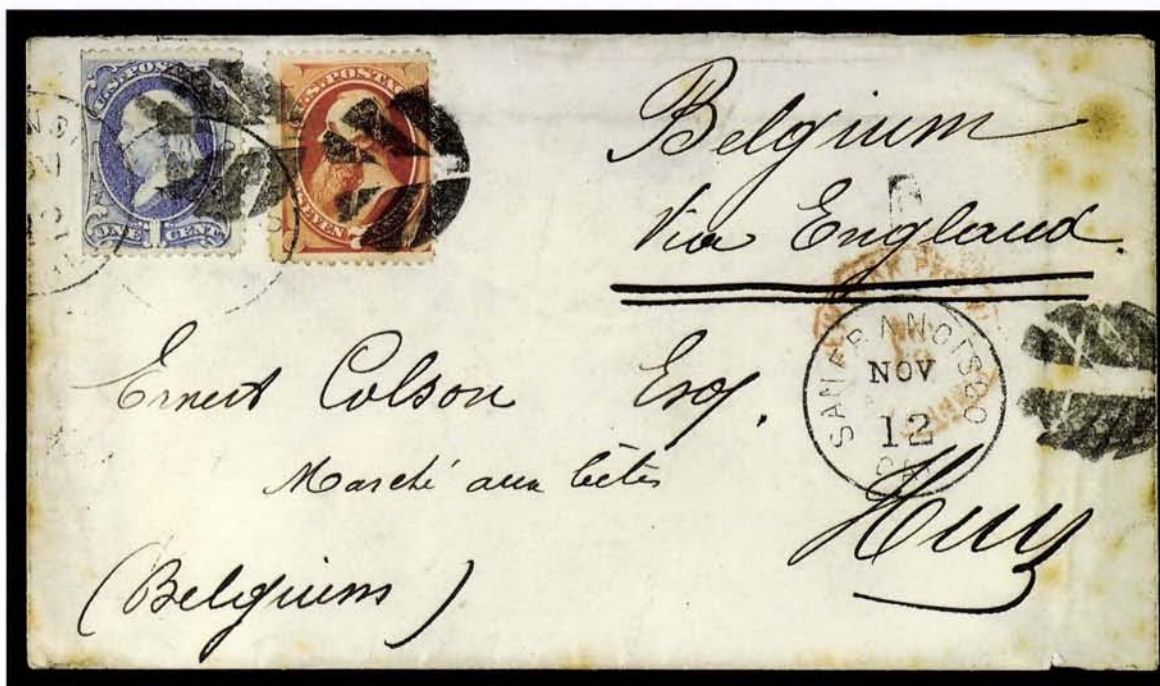 U.S. POSTA
ONE 1 CENT
U.S. POSTA
SEVEN
Belgium
Via England.
SAN FRANCISCO
NOV
12
Ernest Colson Esq.
Marché aux bêtes
Huy
(Belgium)